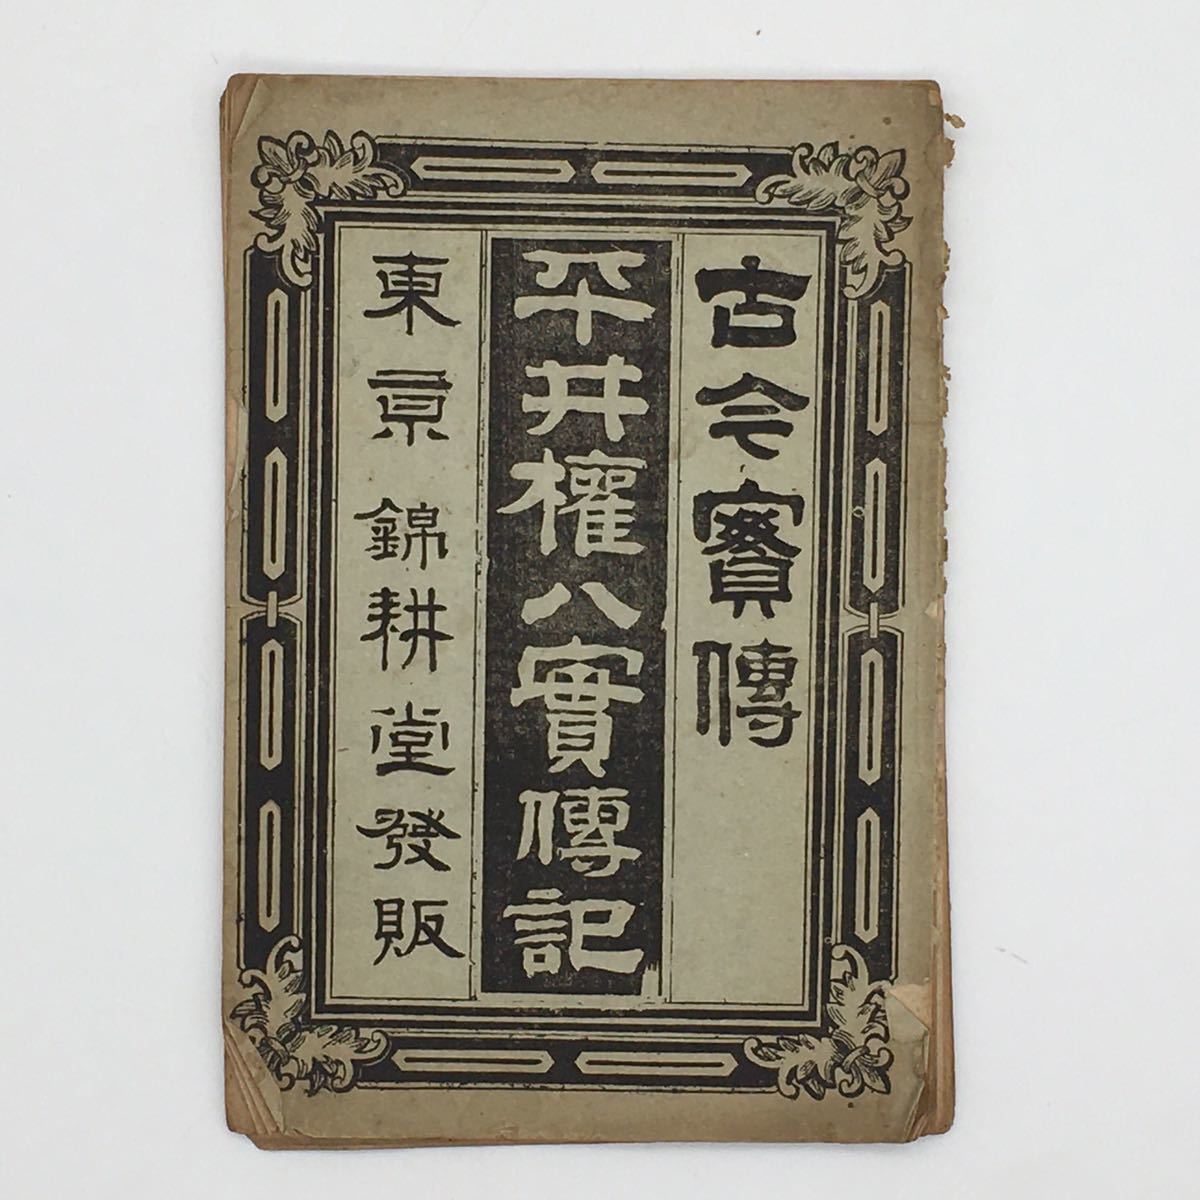 古今實傳
平井權八實傳記
東京錦耕堂發販